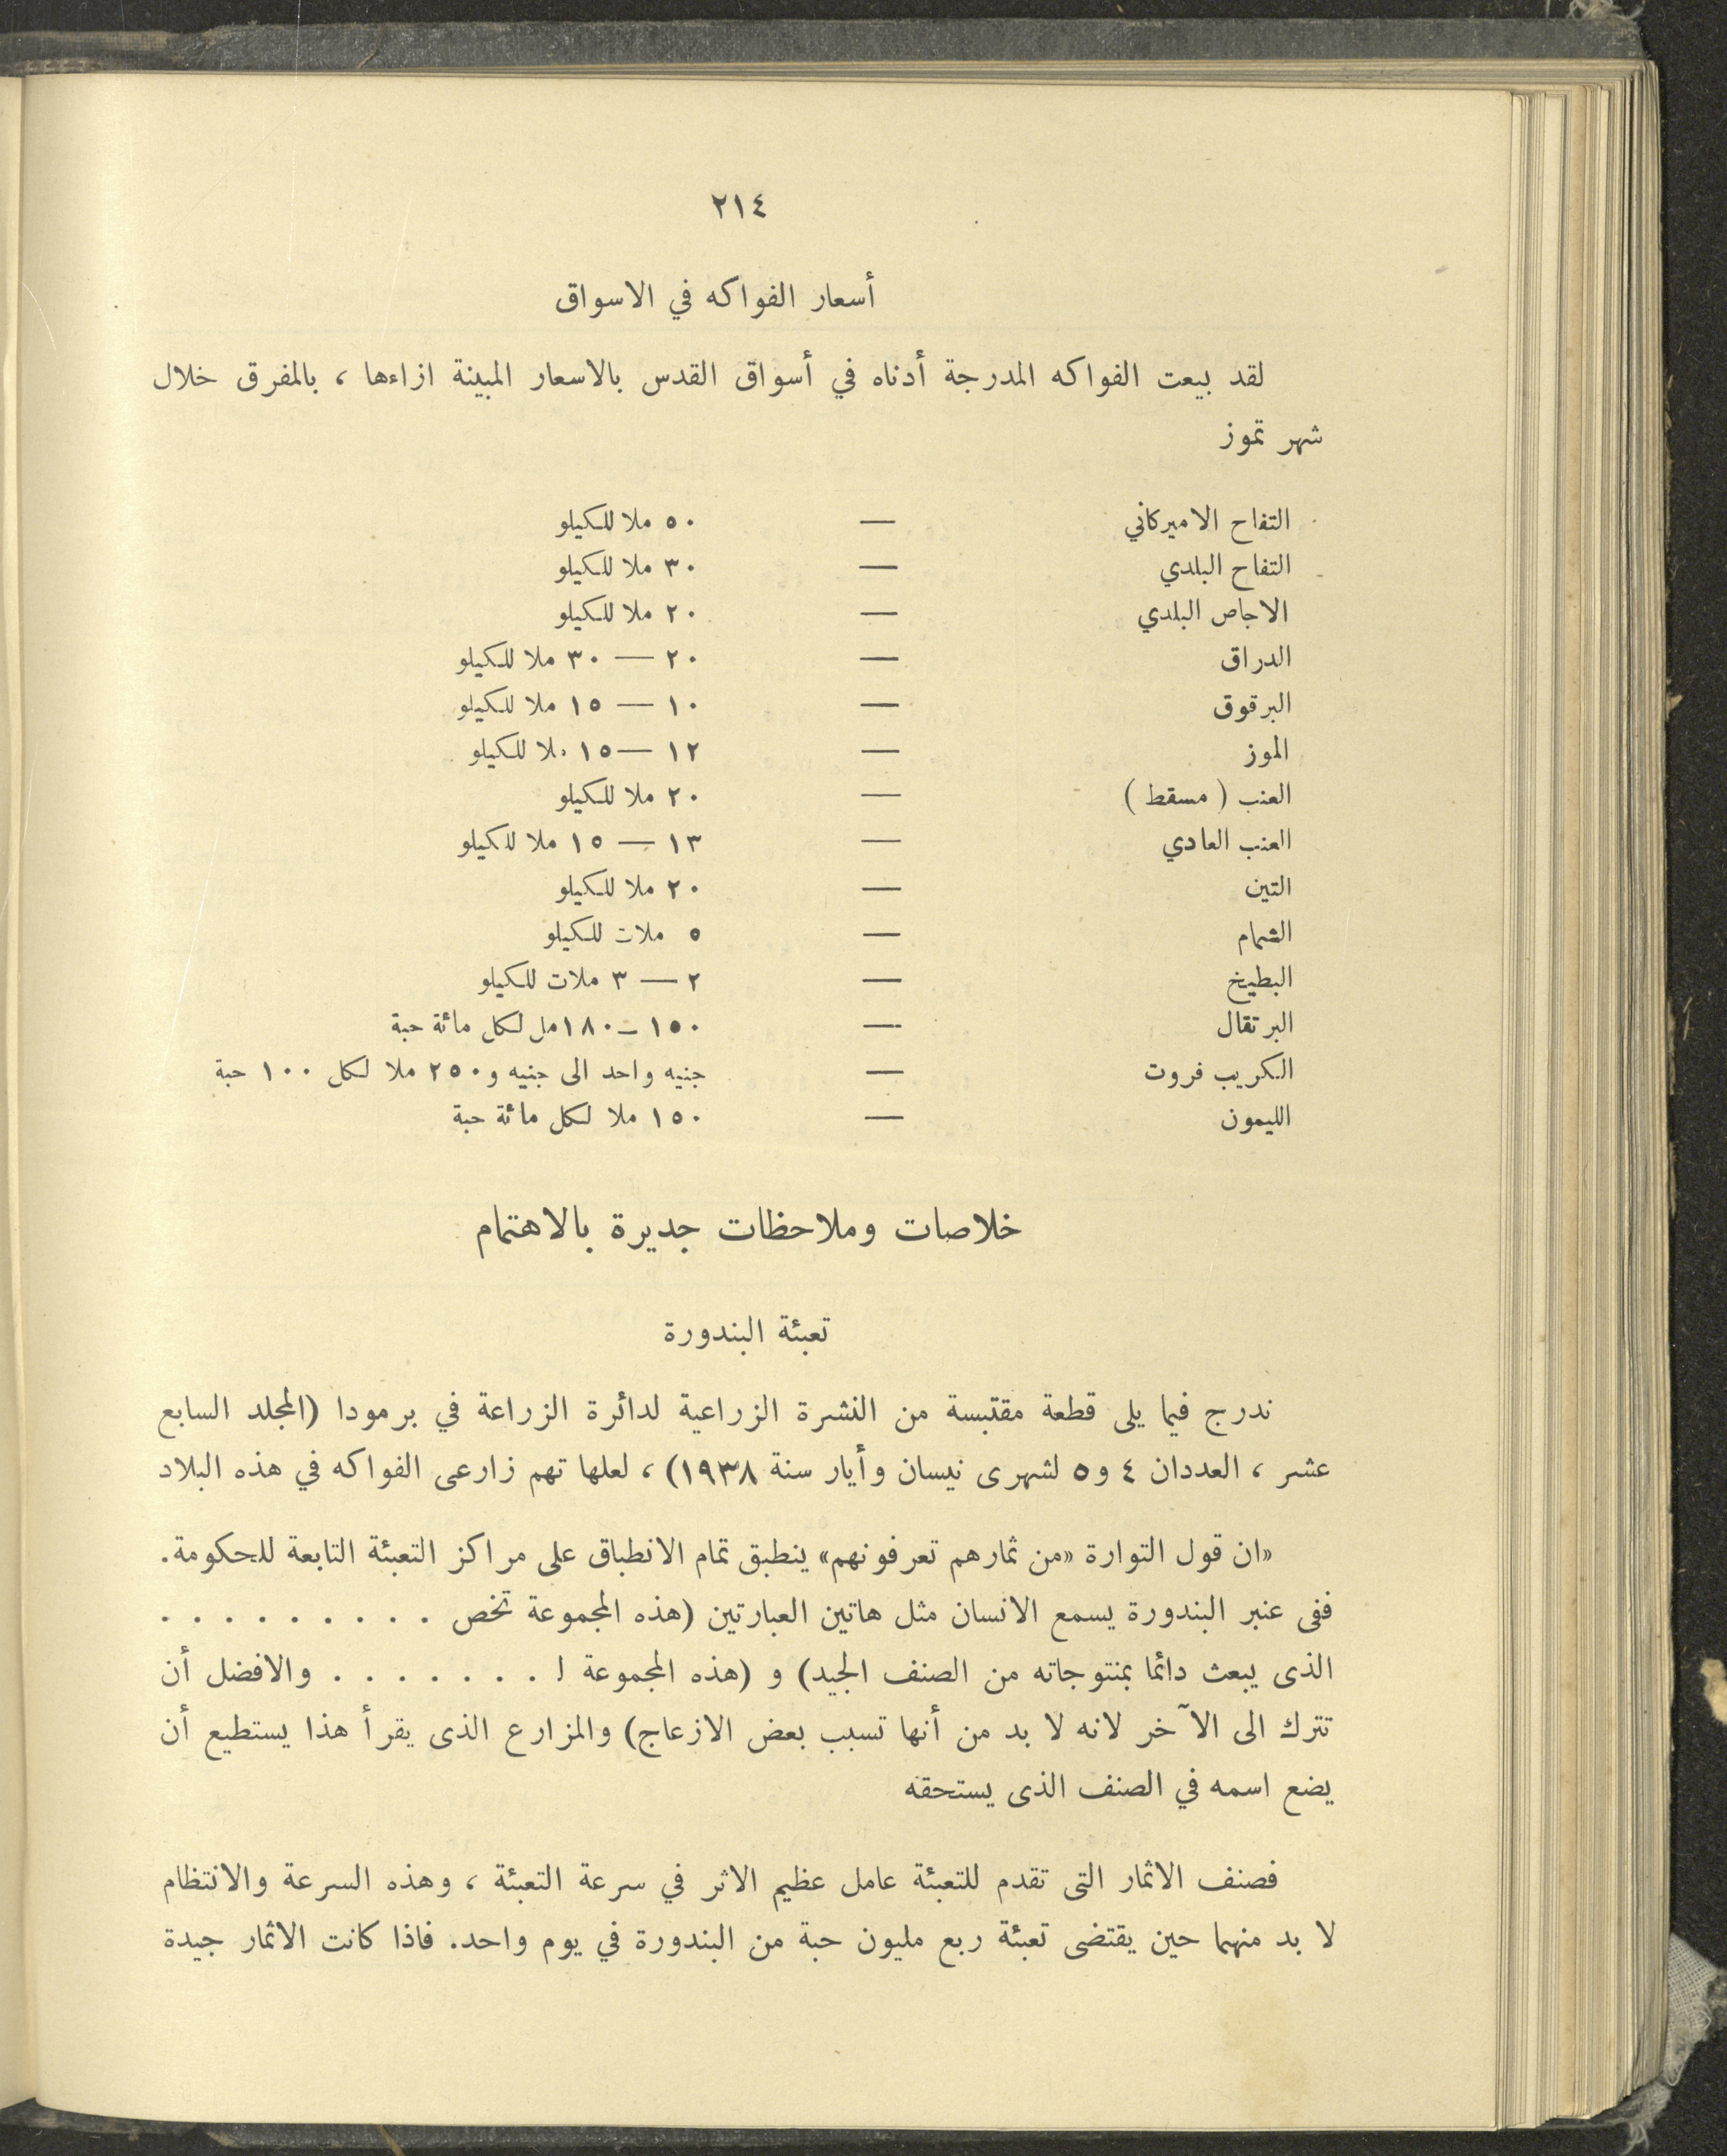 ٢١٤
أسعار الفواكه في الاسواق
لقد بيعت الفواكه المدرجة أدناه في أسواق القدس بالاسعار المبينة ازاءها ، بالمفرق خلال
شهر تموز
التفاح الاميركاني — ٥٠ ملا للكيلو
التفاح البلدي — ٣٠ ملا للكيلو
الاجاص البلدي — ٢٠ ملا للكيلو
الدراق — ٢٠ — ٣٠ ملا للكيلو
البرقوق — ١٠ — ١٥ ملا للكيلو
الموز — ١٢ — ١٥ ملا للكيلو
العنب ( مسقط ) — ٢٠ ملا للكيلو
العنب العادي — ١٣ — ١٥ ملا للكيلو
التين — ٢٠ ملا للكيلو
الشمام — ٥ ملات للكيلو
البطيخ — ٢ — ٣ ملات للكيلو
البرتقال — ١٥٠ — ١٨٠ مل لكل مائة حبة
الكريب فروت — جنيه واحد الى جنيه و٢٥٠ ملا لكل ١٠٠ حبة
الليمون — ١٥٠ ملا لكل مائة حبة
خلاصات وملاحظات جديرة بالاهتمام
تعبئة البندورة
ندرج فيما يلى قطعة مقتبسة من النشرة الزراعية لدائرة الزراعة في برمودا (المجلد السابع
عشر ، العددان ٤ و٥ لشهرى نيسان وأيار سنة ١٩٣٨) ، لعلها تهم زارعى الفواكه في هذه البلاد
«ان قول التوارة «من ثمارهم تعرفونهم» ينطبق تمام الانطباق على مراكز التعبئة التابعة للحكومة.
ففى عنبر البندورة يسمع الانسان مثل هاتين العبارتين (هذه المجموعة تخص . . . . . . . . .
الذى يبعث دائما بمنتوجاته من الصنف الجيد) و (هذه المجموعة ا . . . . . . . والافضل أن
تترك الى الآخر لانه لا بد من أنها تسبب بعض الازعاج) والمزارع الذى يقرأ هذا يستطيع أن
يضع اسمه في الصنف الذى يستحقه
فصنف الاثمار التى تقدم للتعبئة عامل عظيم الاثر في سرعة التعبئة ، وهذه السرعة والانتظام
لا بد منهما حين يقتضى تعبئة ربع مليون حبة من البندورة في يوم واحد. فاذا كانت الاثمار جيدة